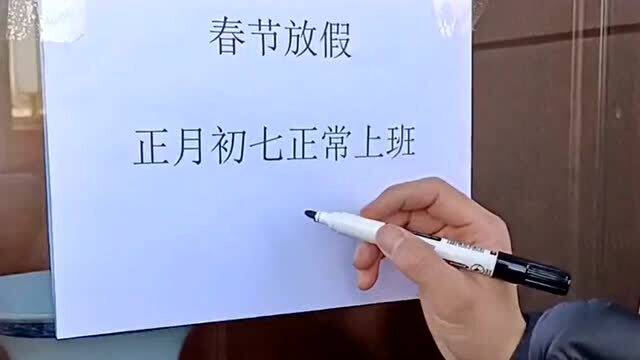 春节放假
正月初七正常上班